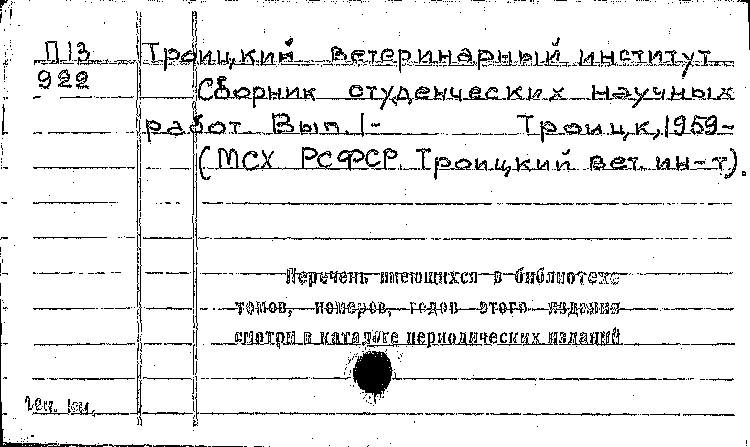 П13 Троицкий ветеринарный институт
922 Сборник студенческих научных
работ. Вып. 1- Троицк, 1959-
(МСХ РСФСР. Троицкий вет. ин-т).
Перечень имеющихся в библиотеке
томов, номеров, годов этого издания
смотри в каталоге периодических изданий